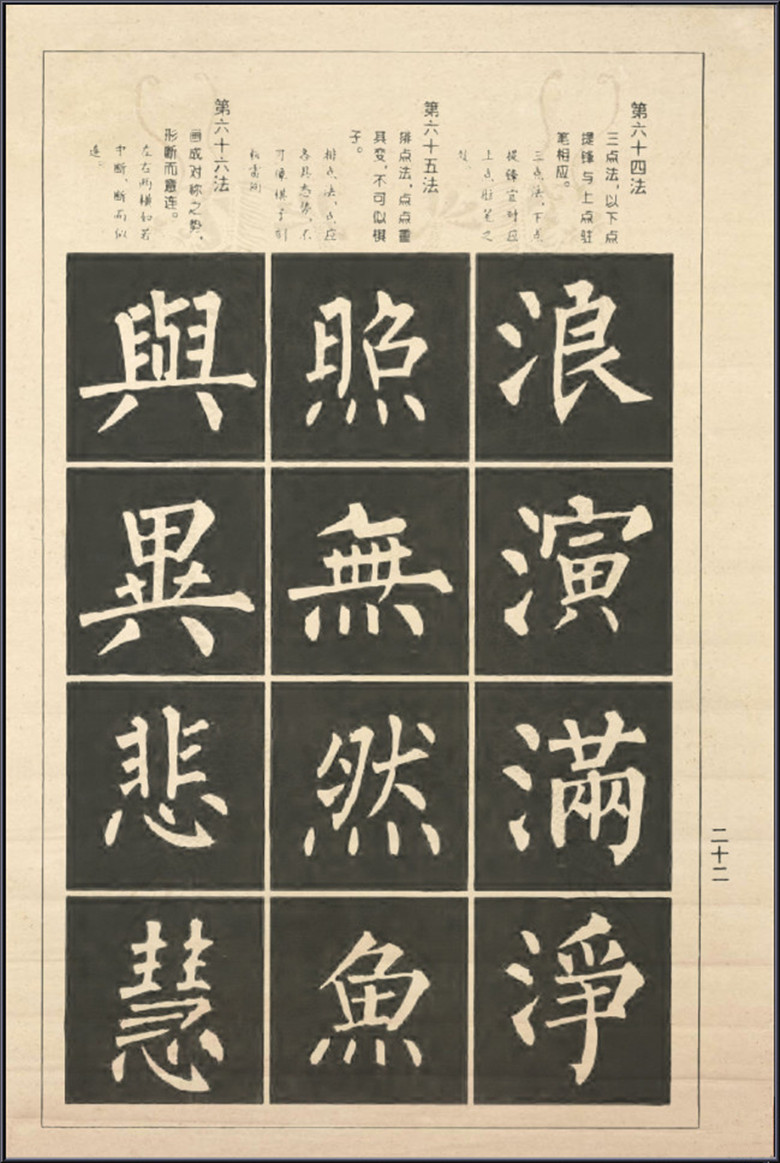 第六十四法
三点法，以下点
提锋与上点驻
笔相应。
三点法，下点
提锋宜对应
上点驻笔之
第六十五法
排点法，点点重
具变，不可似棋
子。
排点法，点应
各具态势，不
可像棋子
第六十六法
画成对称之势，
形断而意连。
左右两横
中断，断而似
连。
浪演滿淨
照無然魚
與異悲慧
二十二